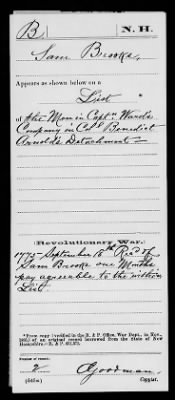 B | N. H.
Sam Brooks,
Appears as shown below on a
List
of the Men in Captn Wards
Company in Col Benedict
Arnolds Detachment
Revolutionary War.
1775 - September 16th Recd of
Sam Brooks one Months
pay agreeable to the within
List.
*From copy (verified in the R. & P. Office, War Dept., in Nov.,
of an original record borrowed from the State of New
Hampshire.—R. & P.
Number of record:
2
Goodman,
Copyist.